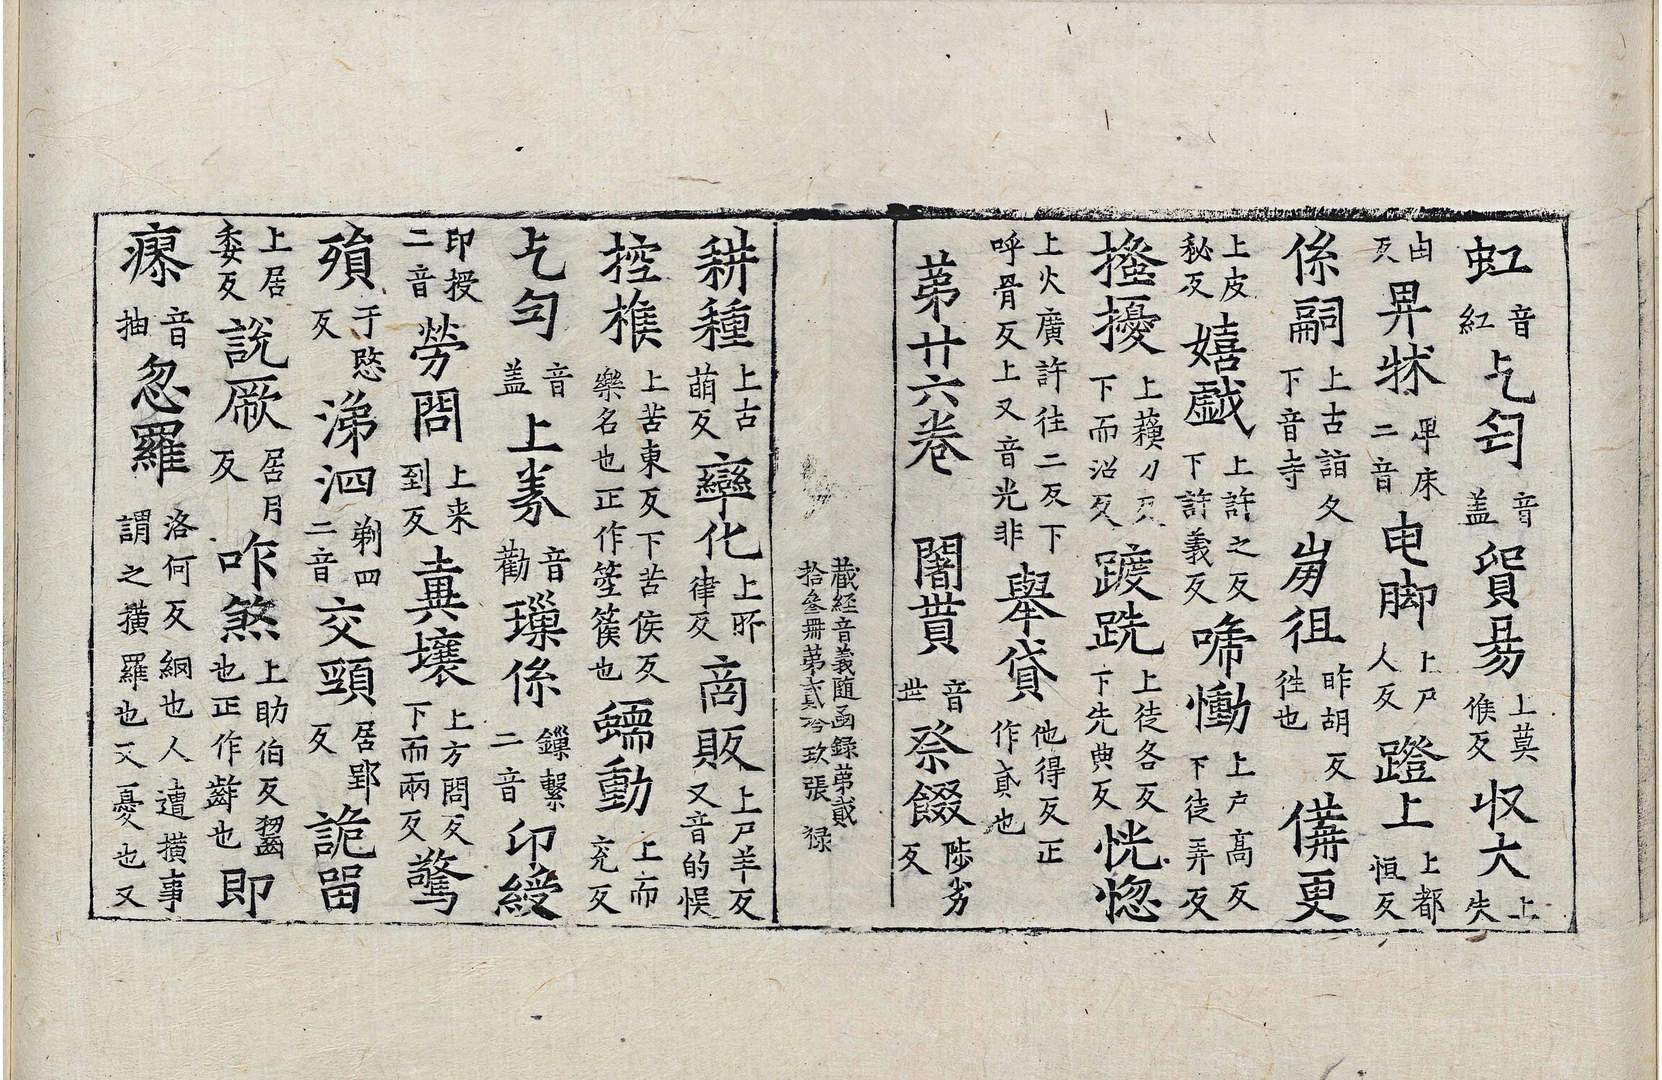 虹音紅乞匃音蓋貿易上莫候反収大上失
由反畀牀𤰞床二音电脚上尸人反蹬上上都恒反
係嗣上古詣反下音寺崩徂昨胡反徃也傋更
上皮秘反嬉戯上許之反下許義反啼慟上户高反下徒弄反
搔擾上蘓刀反下而沼反踱跣上徒各反下先典反恍惚
上火廣許往二反下呼骨反上又音光非舉貸他得反正作貣也
苐廿六卷 闍贳音世祭餟陟劣反
藏經音義随函録苐貳拾叄冊苐貳兮玖張 禄
耕種上古萌反孿化上所律反商販上尸羊反又音的悮
控㩀上苦東反下苦侯反樂名也正作箜篌也蠕動上而兖反
乞匃音蓋上豢音勸璅係鏁繫二音印綬
印授二音勞問上来到反糞壤上方問反下而兩反驚
殞于愍反涕泗剃四二音交頸居郢反詭㽞
上居委反說厥居月反咋煞上助伯反齧也正作齰也即
瘳音抽忽羅洛何反綱也人遭撗事謂之撗羅也又憂也又